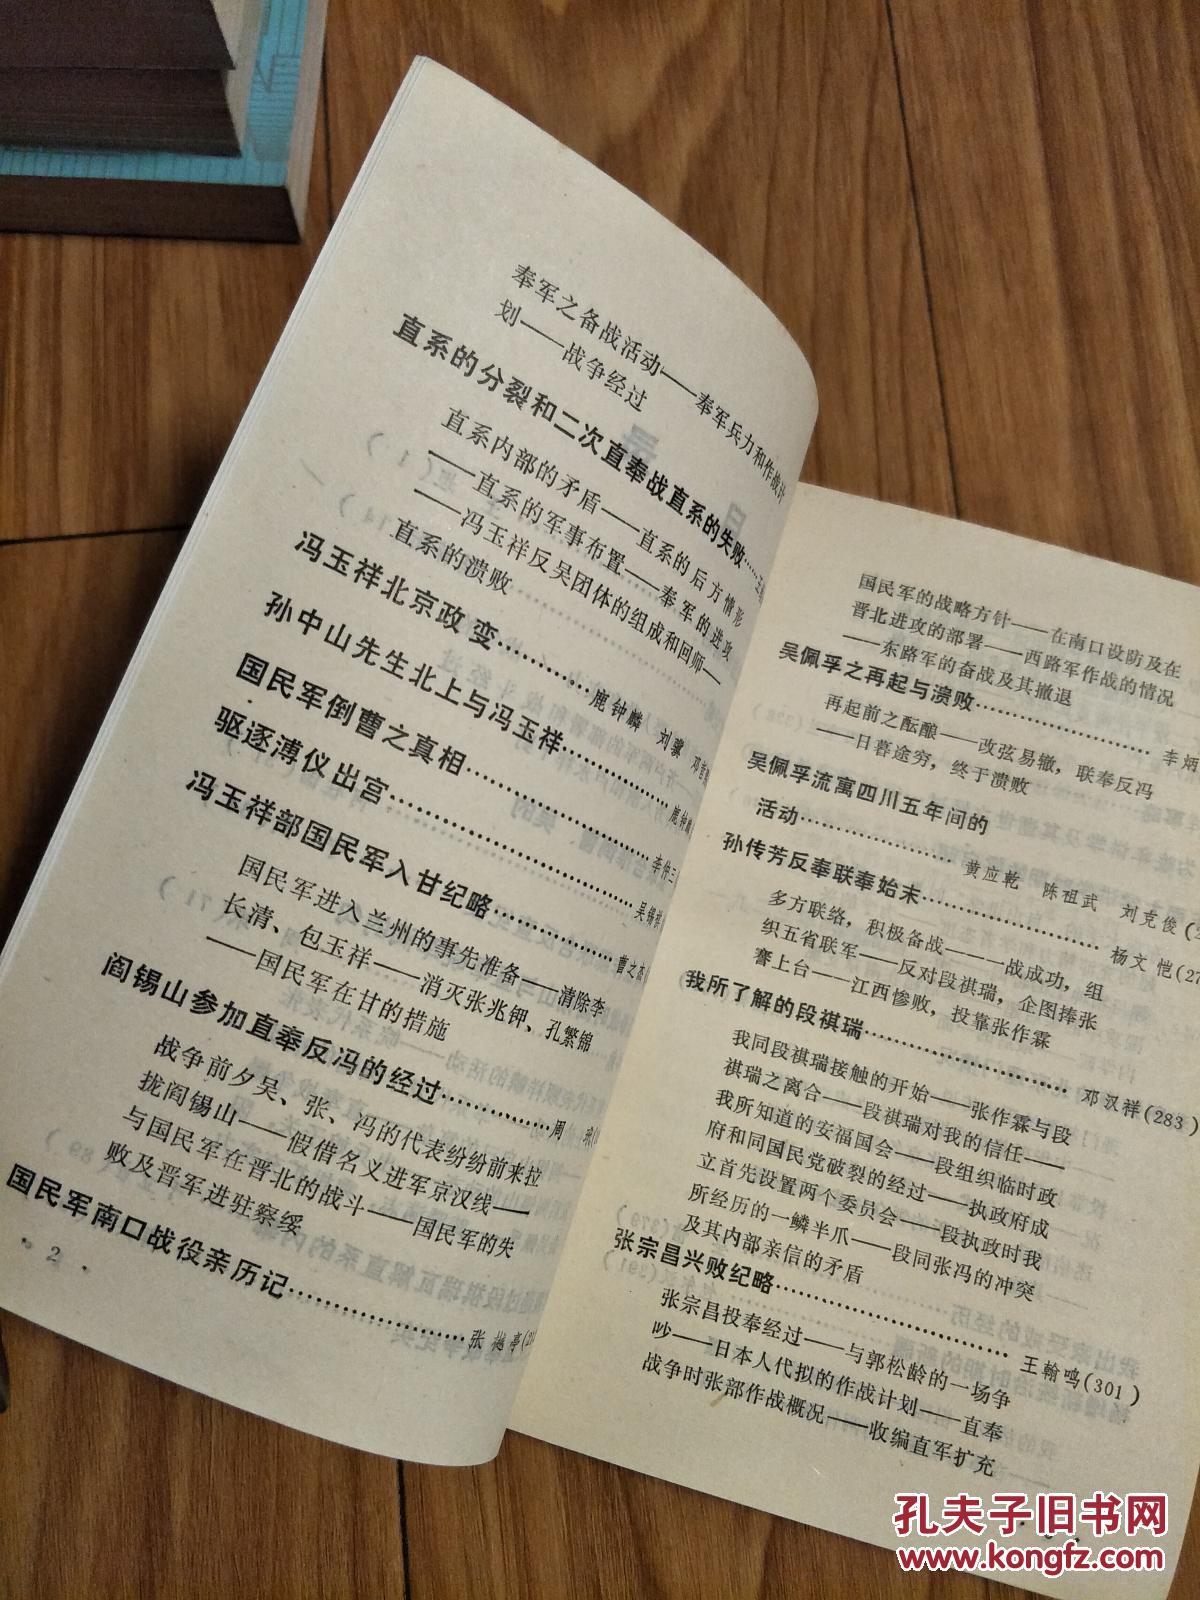 奉军之备战活动——奉军兵力和作战计
划——战争经过
直系的分裂和二次直奉战直系的失败……
直系内部的矛盾——直系的后方情形
——直系的军事布置——奉军的进攻
——冯玉祥反吴团体的组成和回师——
直系的溃败
冯玉祥北京政变……………鹿钟麟 刘骥
孙中山先生北上与冯玉祥……………鹿钟麟
国民军倒曹之真相……………李仲三
驱逐溥仪出宫……………吴锡祺
冯玉祥部国民军入甘纪略……………曹之杰
国民军进入兰州的事先准备——清除李
长清、包玉祥——消灭张兆钾、孔繁锦
——国民军在甘的措施
阎锡山参加直奉反冯的经过……………周
战争前夕吴、张、冯的代表纷纷前来拉
拢阎锡山——假借名义进军京汉线——
与国民军在晋北的战斗——国民军的失
败及晋军进驻察绥
国民军南口战役亲历记……………张樾亭
2
国民军的战略方针——在南口设防及在
晋北进攻的部署——西路军作战的情况
——东路军的奋战及其撤退
吴佩孚之再起与溃败……………李炳
再起前之酝酿——改弦易辙，联奉反冯
——日暮途穷，终于溃败
吴佩孚流寓四川五年间的
活动……………黄应乾 陈祖武 刘克俊
孙传芳反奉联奉始末……………杨文恺(27
多方联络，积极备战——一战成功，组
织五省联军——反对段祺瑞，企图捧张
謇上台——江西惨败，投靠张作霖
我所了解的段祺瑞……………邓汉祥(283)
我同段祺瑞接触的开始——张作霖与段
祺瑞之离合——段祺瑞对我的信任——
我所知道的安福国会——段组织临时政
府和同国民党破裂的经过——执政府成
立首先设置两个委员会——段执政时我
所经历的一鳞半爪——段同张冯的冲突
及其内部亲信的矛盾
张宗昌兴败纪略……………王翰鸣(301)
张宗昌投奉经过——与郭松龄的一场争
吵——日本人代拟的作战计划——直奉
战争时张部作战概况——收编直军扩充
孔夫子旧书网
www.kongfz.com